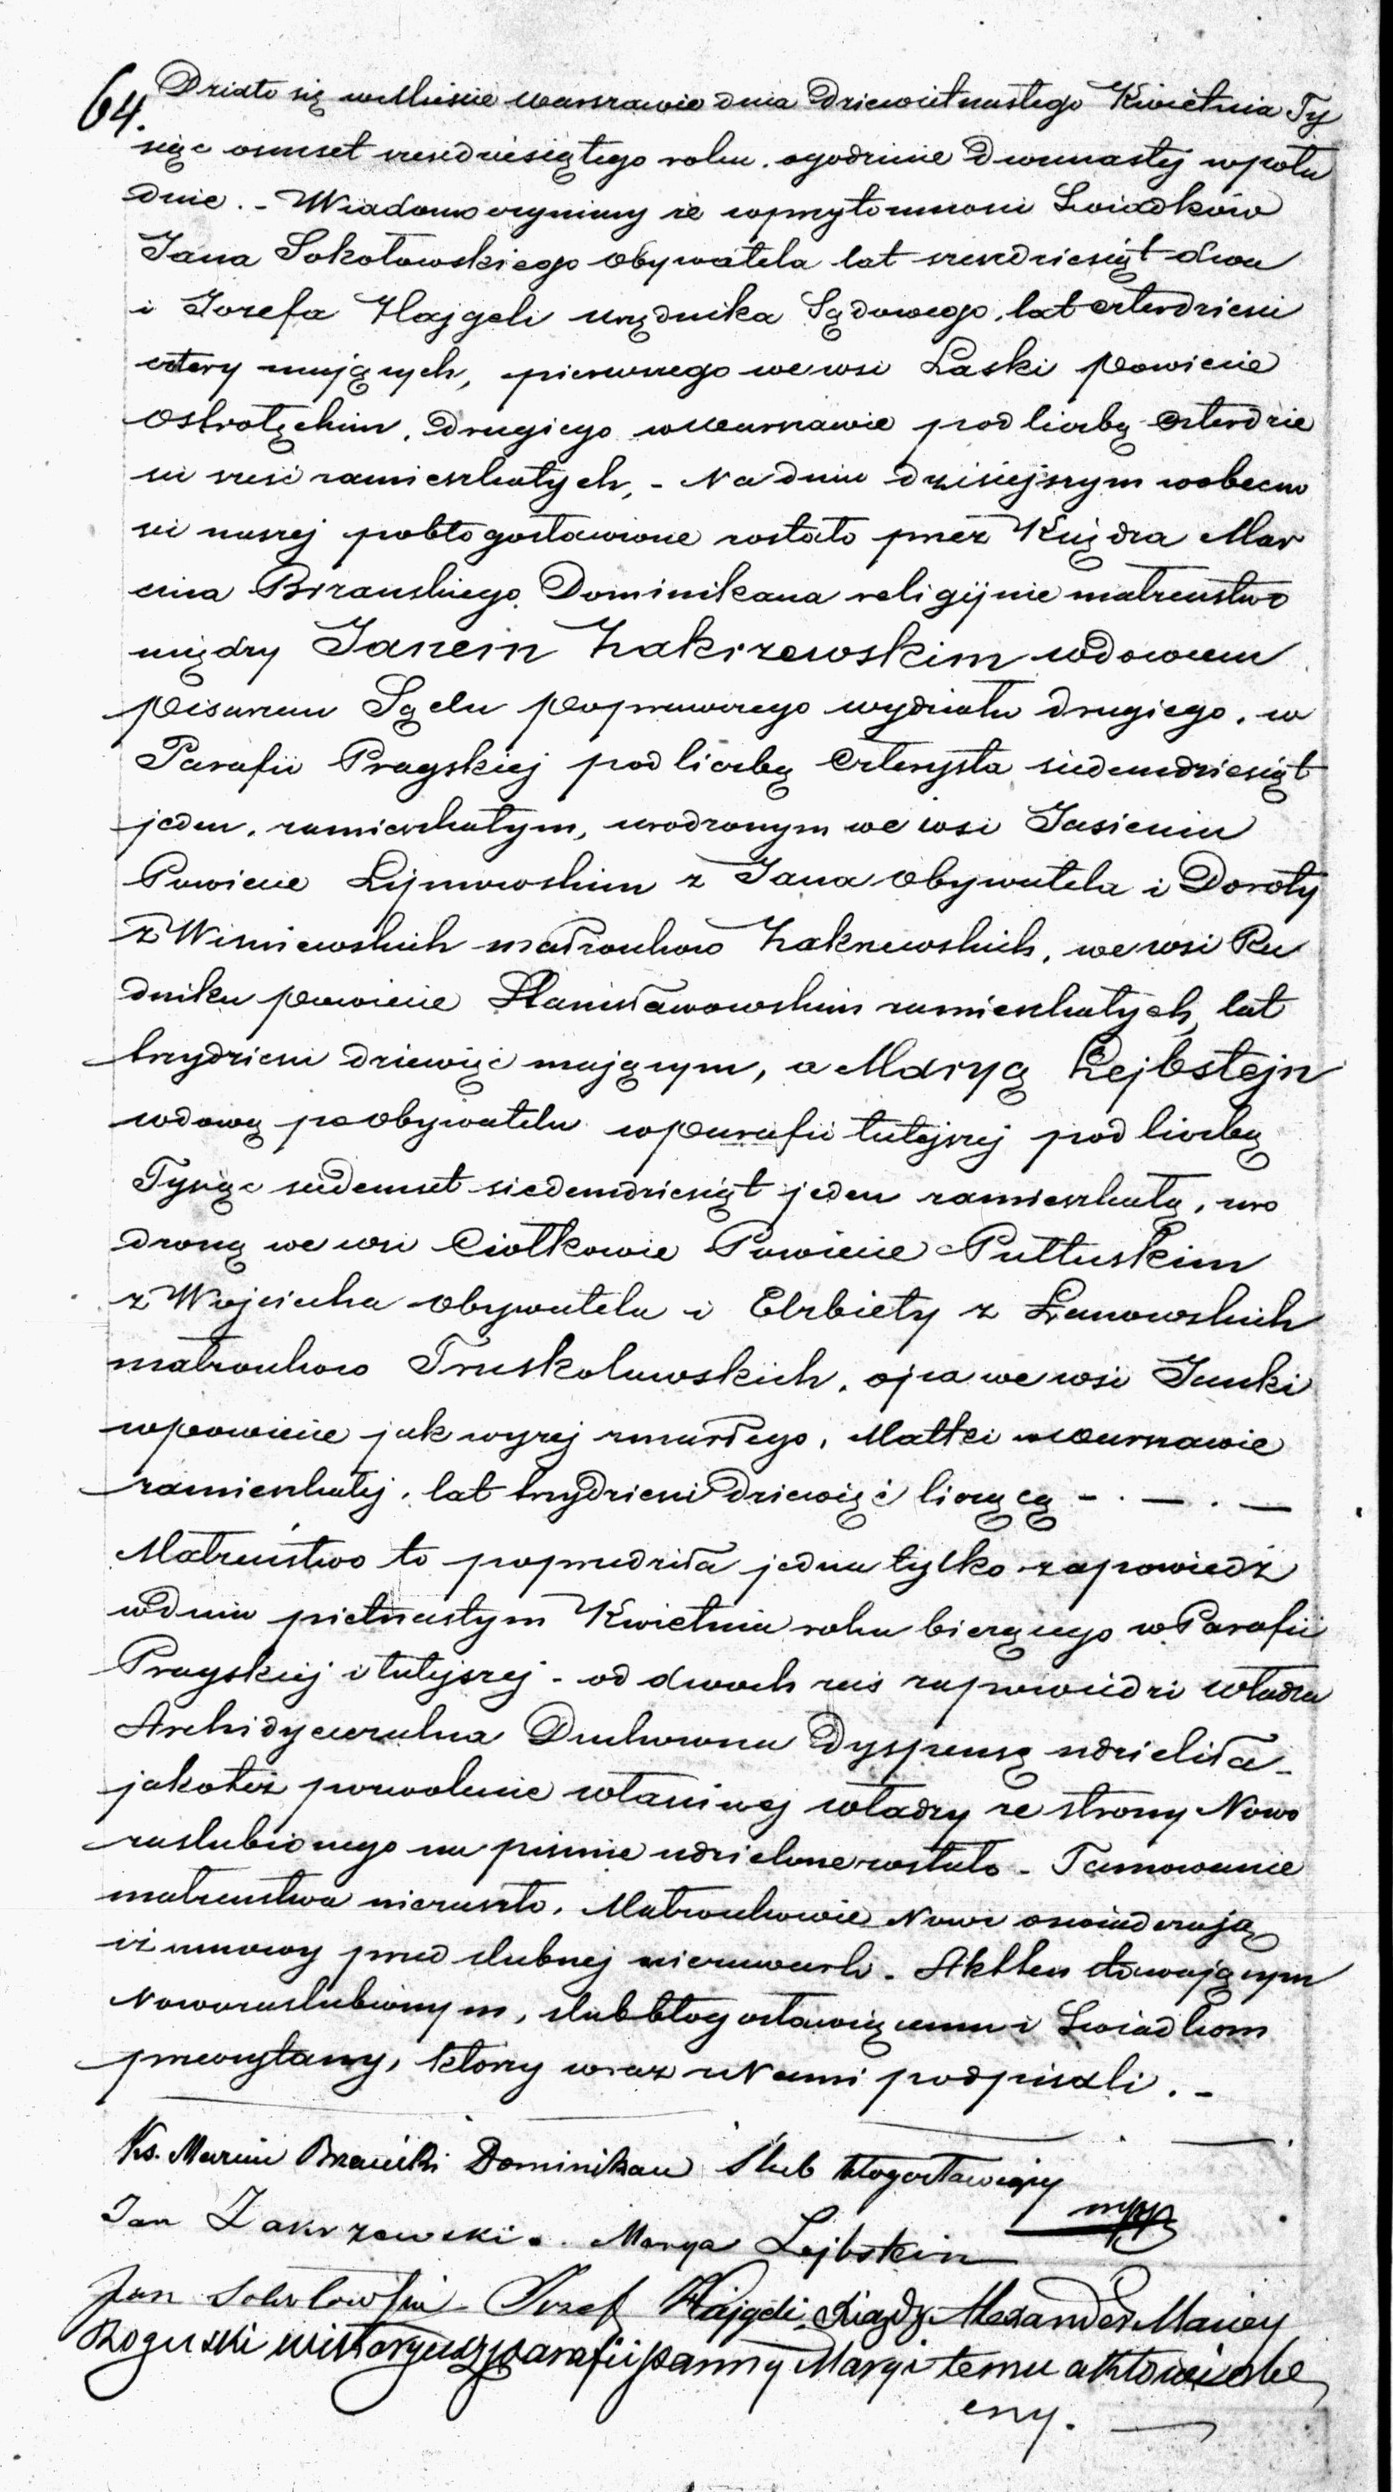 64. Działo się w Mieście Warszawie dnia Dziewiętnastego Kwietnia Ty
siąc osmset sześdziesiątego roku, o godzinie Dwunastej w połu
dnie. - Wiadomo czynimy że w przytomności Swiadków
Jana Sokołowskiego Obywatela lat sześdziesiąt dwa
i Jozefa Hajgeli urzędnika Sądowego, lat czterdzieści
cztery mających, pierwszego we wsi Laski Powiecie
Ostrołęckim, drugiego w Warszawie pod liczbą czterdzie
ści sześć zamieszkałych, - Na dniu dzisiejszym w obecno
ści naszej pobłogosławione zostało przez Księdza Mar
cina Brzanskiego Dominikana religijnie małżeństwo
między Janem Zakrzewskim wdowcem
Pisarzem Sądu Poprawczego wydziału drugiego, w
Parafii Pragskiej pod liczbą czterysta siedemdziesiąt
jeden, zamieszkałym, urodzonym we wsi Jasieniu
Powiecie Lipnowskim z Jana Obywatela i Doroty
z Wisniewskich małżonków Zakrzewskich, we wsi Ru
dniku powiecie Stanisławowskim zamieszkałych, lat
trzydzieści dziewięć mającym, a Maryą Lejbstejn
wdową po Obywatelu w Parafii tutejszej pod liczbą
Tysiąc siedemset siedemdziesiąt jeden zamieszkałą, uro
dzoną we wsi Ciołkowie Powiecie Pułtuskim
z Wojciecha Obywatela i Elżbiety z Łanowskich
małżonków Truskolawskich, ojca we wsi Janki
w powiecie jak wyżej zmarłego, Matki w Warszawie
zamieszkałej, lat trzydzieści dziewięć liczącą - . — . —
Małżeństwo to poprzedziła jedna tylko zapowiedź
w dniu piętnastym Kwietnia roku bieżącego w Parafii
Pragskiej i tutejszej - od dwoch zaś zapowiedzi władza
Archidyecezalna Duchowna Dyspensę udzieliła -
jakoteż pozwolenie własciwej władzy ze strony Nowo
zaslubionego na pismie udzielone zostało - Tamowanie
małżenstwa nie zaszło. Małżonkowie Nowi oswiadczają
iż umowy przed slubnej niezawarli. Akt ten stawającym
Nowozaslubionym, slub błogosławiącemu i Swiadkom
przeczytany, ktory wraz z Nami podpisali. -
Ks. Marcin Brzański Dominikan Slub błogosławiący
mpp
Jan Zakrzewski. Marya Lejbstein
Jan Sokołowski Jozef Hajgeli, Xiądz Alexander Maciey
Roguski wikaryusz parafii Panny Maryi temu aktowi obe
cny. —